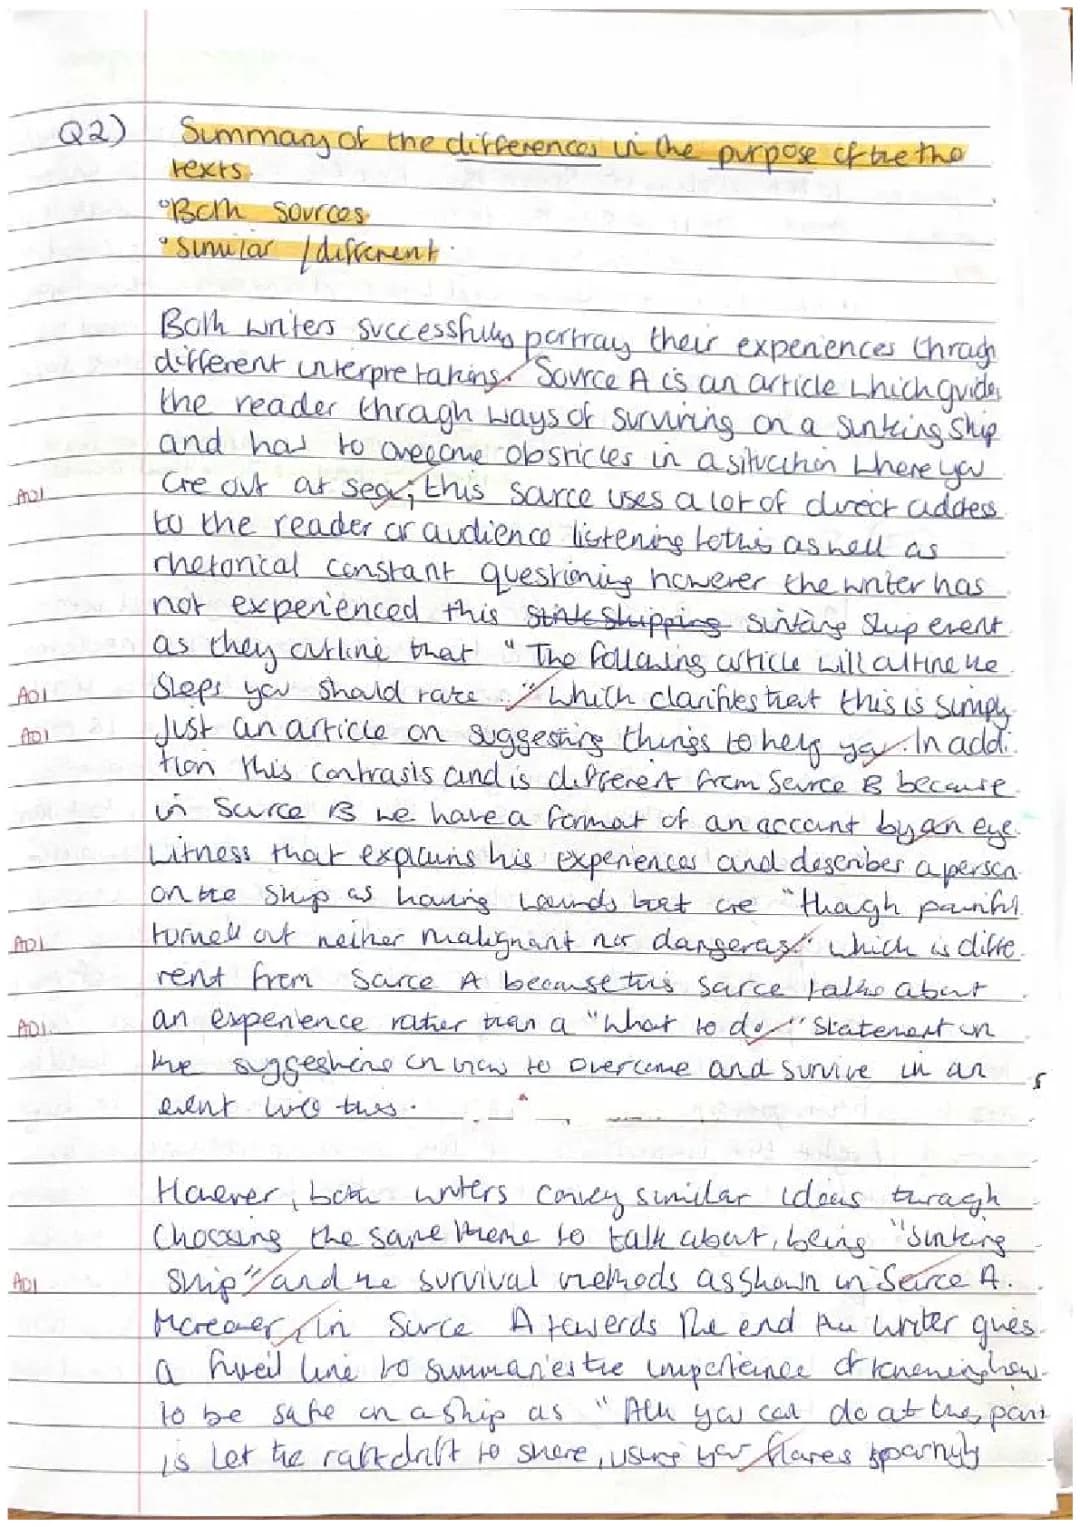 Q2) Summary of the differences in the purpose of the the
texts.
°Both sources
°similar / different.
Both writers successfully portray their experiences through
different interpretations. Source A is an article which guides
the reader through ways of surviving on a sinking ship
and has to overcome obsticles in a situation where you
AO1 are out at sea; this source uses a lot of direct address
to the reader or audience listening to this as well as
rhetorical constant questioning however the writer has
not experienced this sinking ship event
as they outline that "The following article will outline the
AO1 steps you should take" which clarifies that this is simply
AO1 just an article on suggesting things to help you. In addi-
tion this contrasts and is different from Source B because
in Source B we have a format of an account by an eye-
witness that explains his experiences and describes a person
on the ship as having wounds that are "though painful
AO1 turned out neither malignant nor dangerous". which is diffe-
rent from Source A because this source talks about
AO1 an experience rather than a "what to do" statement on
the suggestions on how to overcome and survive in an
event like this. 5
However, both writers convey similar ideas through
choosing the same theme to talk about, being "sinking
AO1 ship" and the survival methods as shown in Source A.
Moreover, in Source A towards the end the writer gives
a line to summaries the importance of knowing how
to be safe on a ship as "All you can do at this point
is let the raft drift to shore, using your flares sparingly